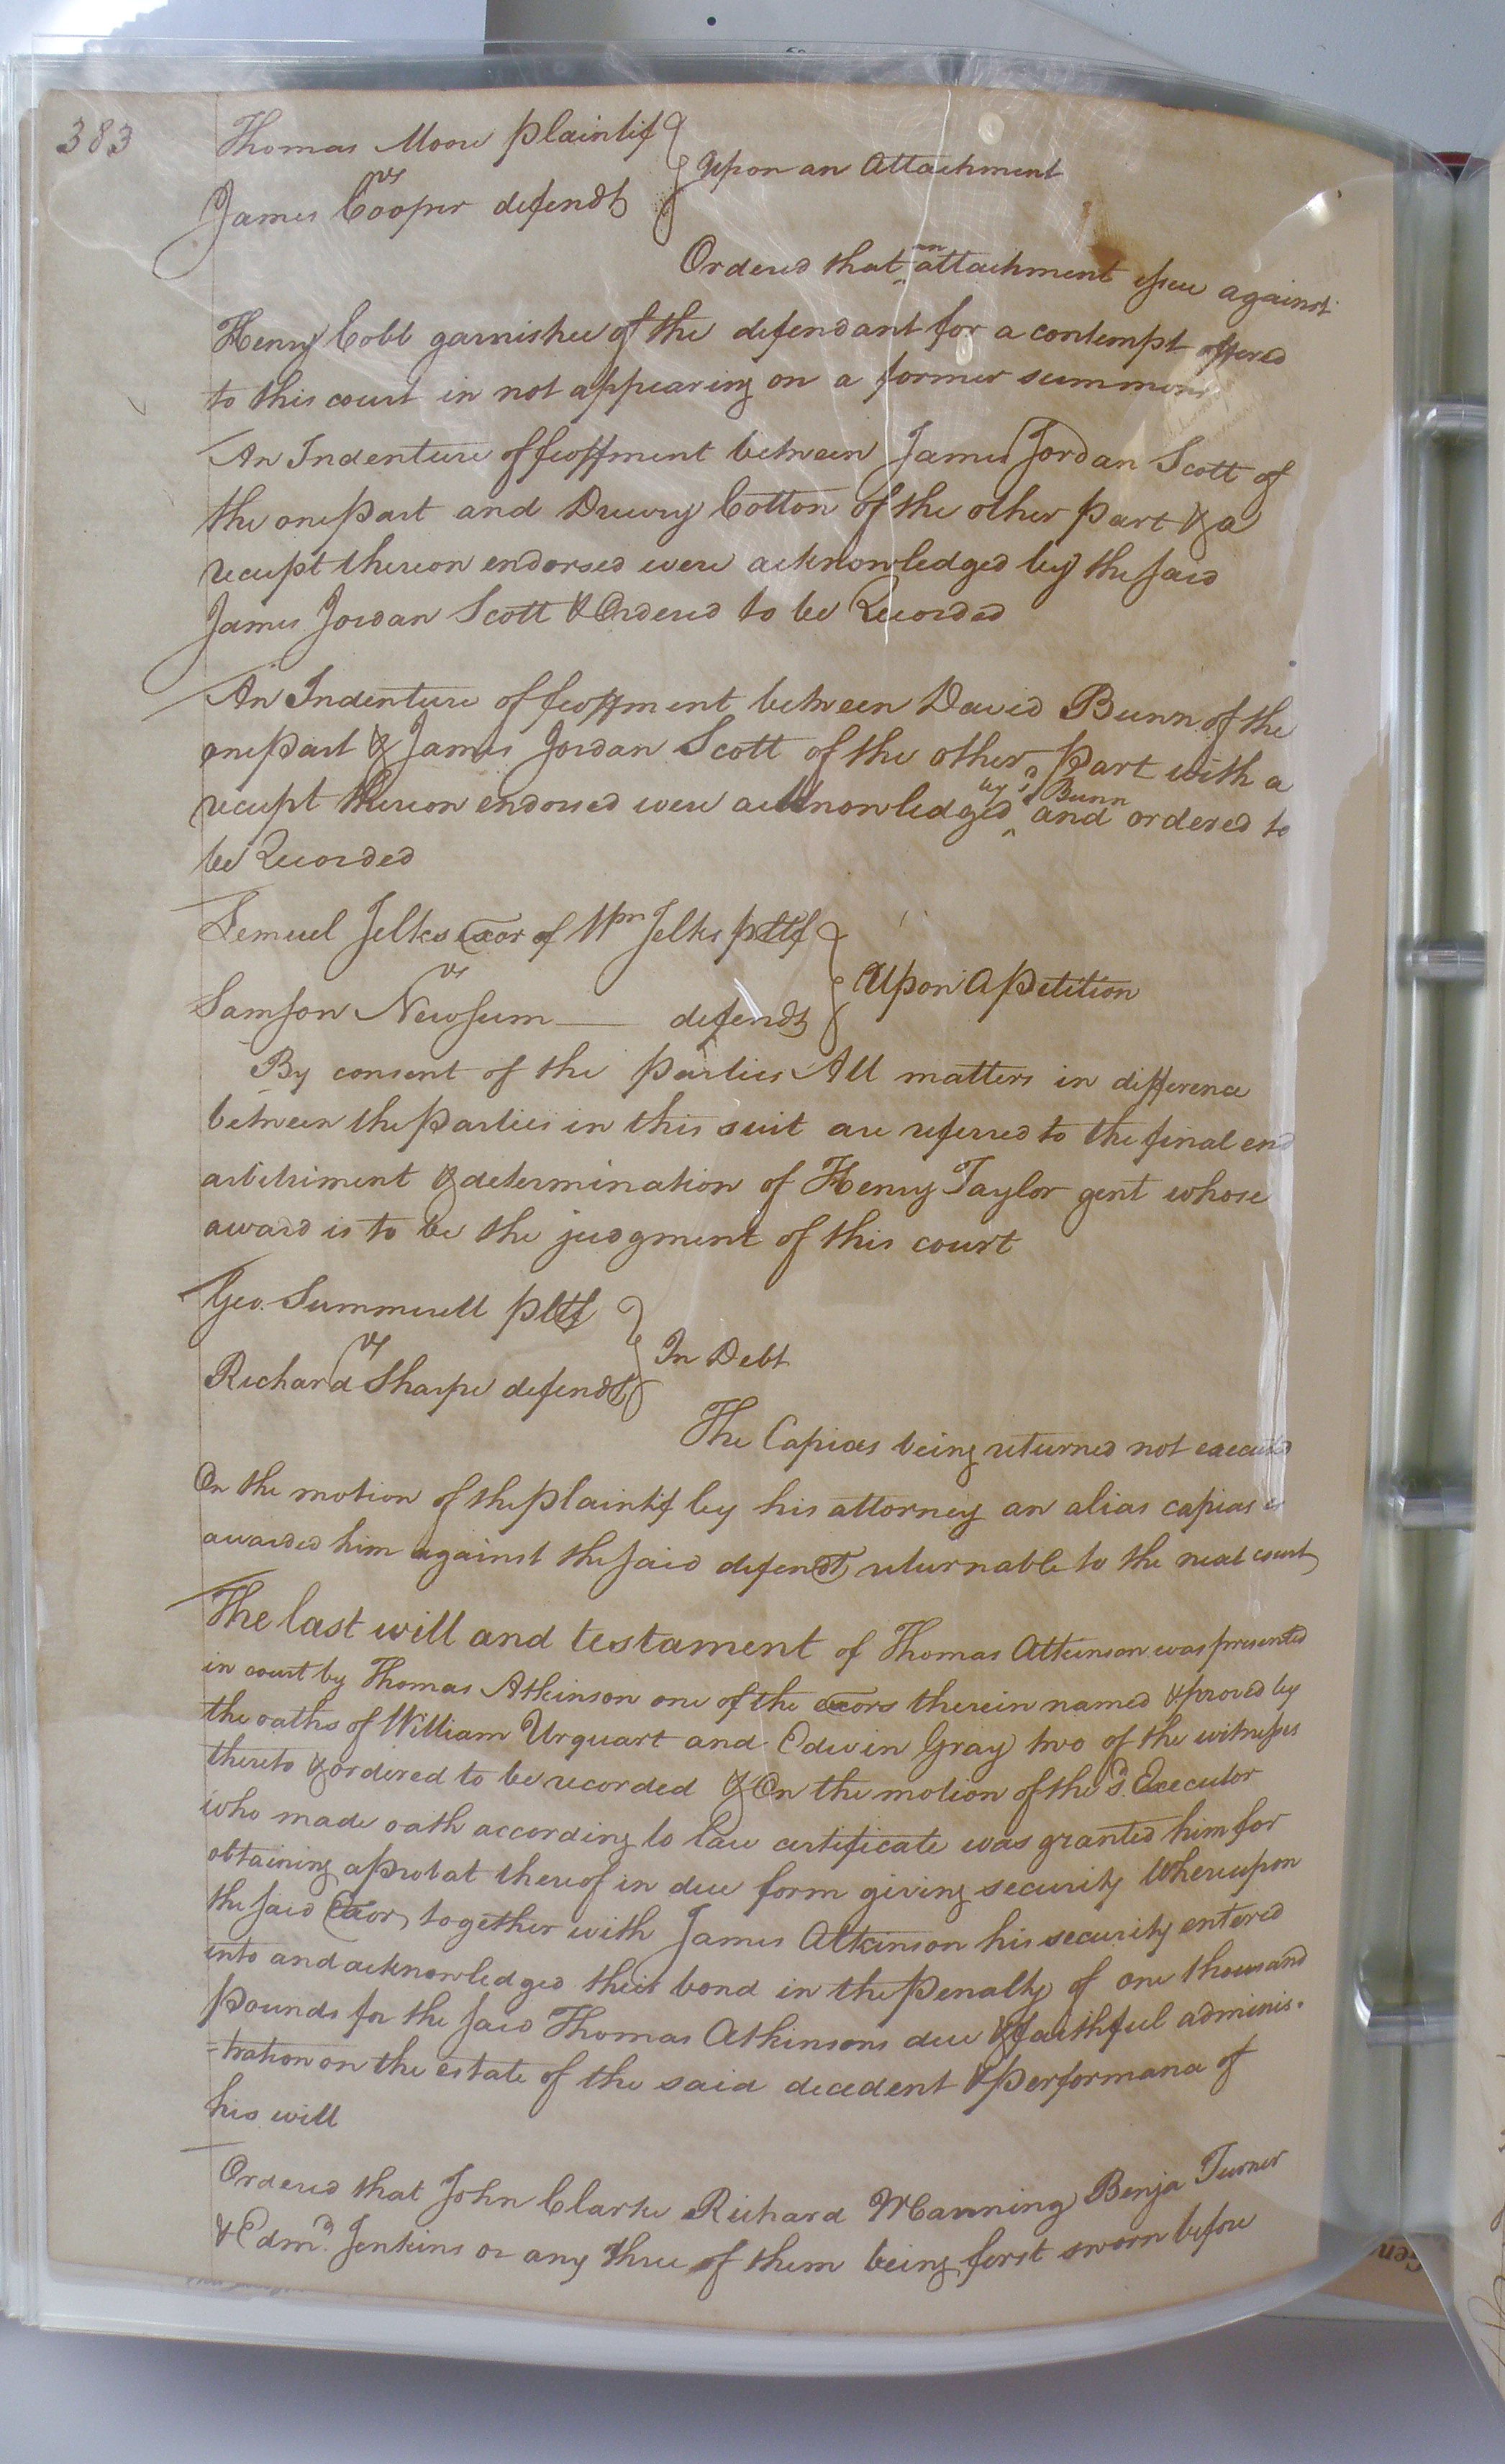 383
Thomas Moore plaintif
vs
James Cooper defendt
Upon an Attachment
Ordered that an attachment issue against
Henry Cobb garnishee of the defendant for a contempt offered
to this court in not appearing on a former summons
An Indenture of feoffment between James Jordan Scott of
the one part and Drewry Cotton of the other part & a
receipt thereon endorsed were acknowledged by the said
James Jordan Scott & Ordered to be Recorded
An Indenture of feoffment between David Bunn of the
one part & James Jordan Scott of the other part with a
receipt thereon endorsed were acknowledged by sd Bunn and ordered to
be Recorded
Lemuel Jelks exor of Wm Jelks pltf
vs
Samson Newsum defendt
Upon a petition
By consent of the parties All matters in difference
between the parties in this suit are referred to the final end
arbitriment & determination of Henry Taylor gent whose
award is to be the judgment of this court
Geo. Summerell pltf
vs
Richard Sharpe defendt
In Debt
The Capias being returned not executed
On the motion of the plaintif by his attorney an alias capias is
awarded him against the said defendt returnable to the next court
The last will and testament of Thomas Atkinson was presented
in court by Thomas Atkinson one of the exors therein named & proved by
the oaths of William Urquart and Edwin Gray two of the witnesses
thereto & ordered to be recorded & On the motion of the sd. Executor
who made oath according to law certificate was granted him for
obtaining a probat thereof in due form giving security Whereupon
the said Exor together with James Atkinson his security entered
into and acknowledged their bond in the penalty of one thousand
pounds for the said Thomas Atkinsons due & faithful adminis-
-tration on the estate of the said decedent & performance of
his will
Ordered that John Clarke Richard Manning Benja Turner
& Edmd. Jenkins or any three of them being first sworn before